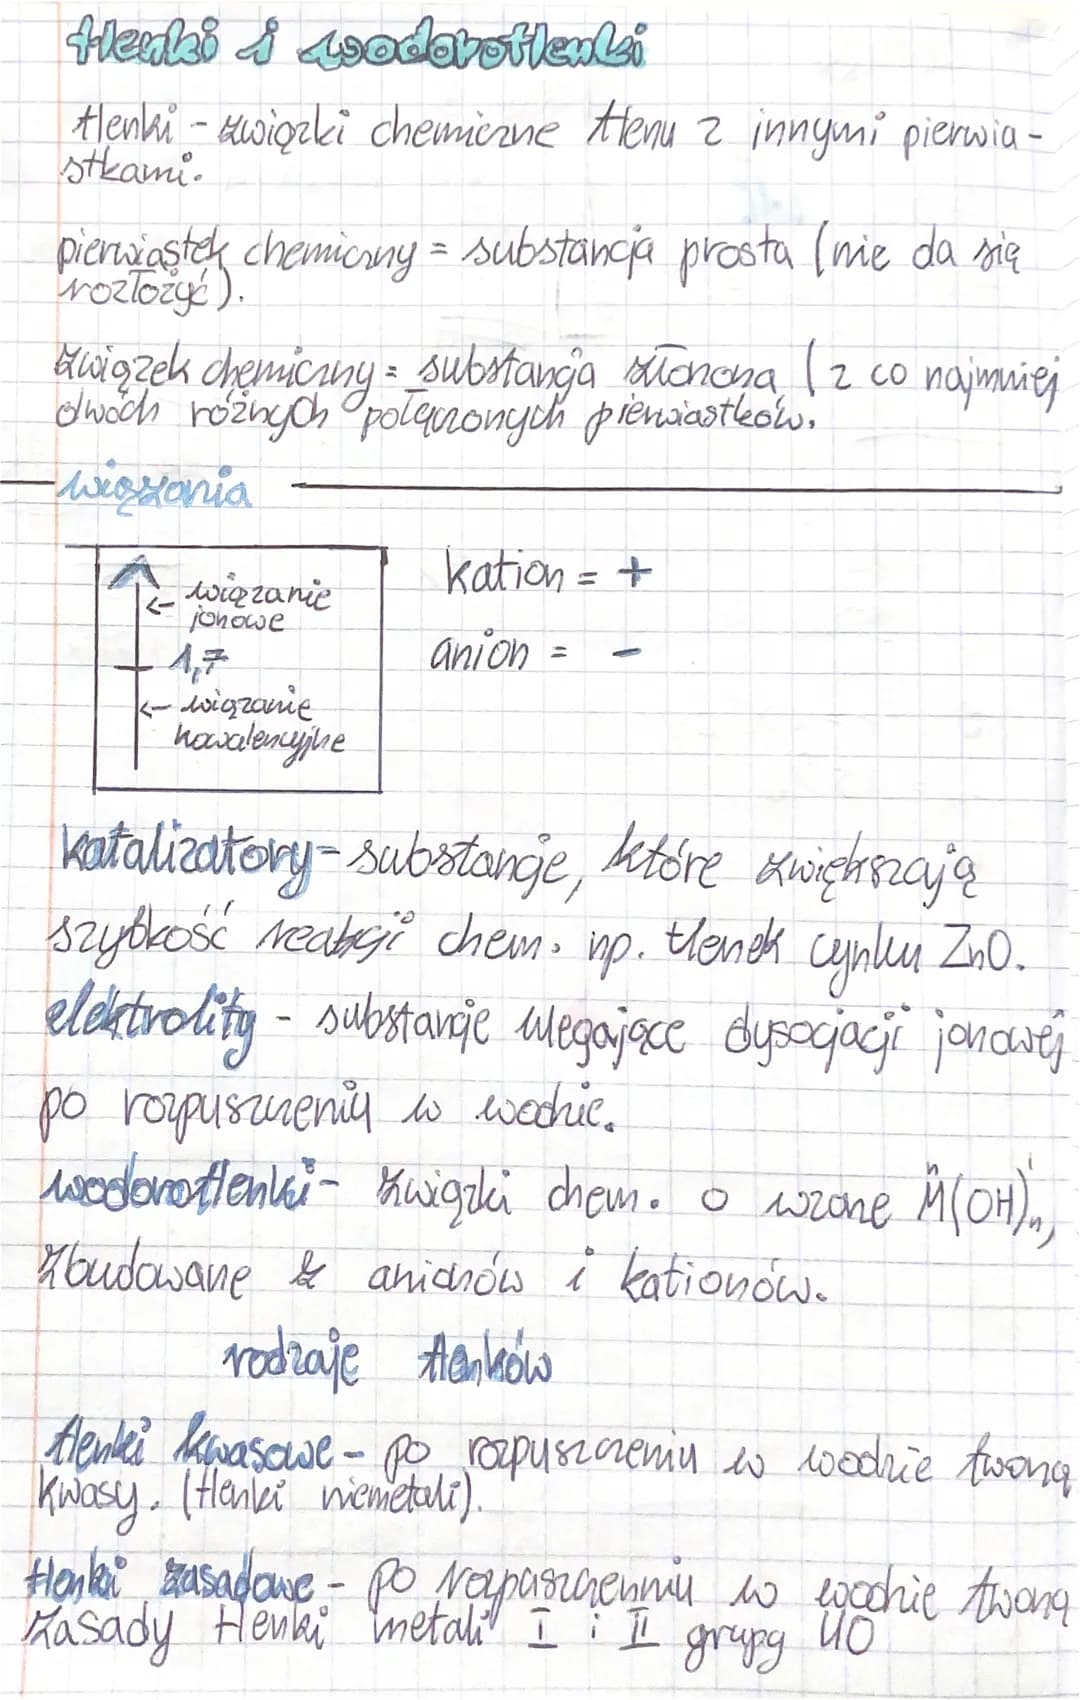 tlenki i wodorotlenki
tlenki - związki chemiczne tlenu z innymi pierwia-
stkami.
pierwiastek chemiczny = substancja prosta (nie da się
rozłożyć).
związek chemiczny = substancja złożona (z co najmniej
dwóch różnych połączonych pierwiastków.
wiązania
← wiązanie
jonowe
1,7
← wiązanie
kowalencyjne
kation = +
anion = -
katalizatory - substancje, które zwiększają
szybkość reakcji chem. np. tlenek cynku ZnO.
elektrolity - substancje ulegające dysocjacji jonowej
po rozpuszczeniu w wodzie.
wodorotlenki - związki chem. o wzorze M(OH)n,
zbudowane z anionów i kationów.
rodzaje tlenków
tlenki kwasowe - po rozpuszczeniu w wodzie tworzą
kwasy. (tlenki niemetali).
tlenki zasadowe - po rozpuszczenniu w wodzie tworzą
zasady tlenki metali I i II grupy UO